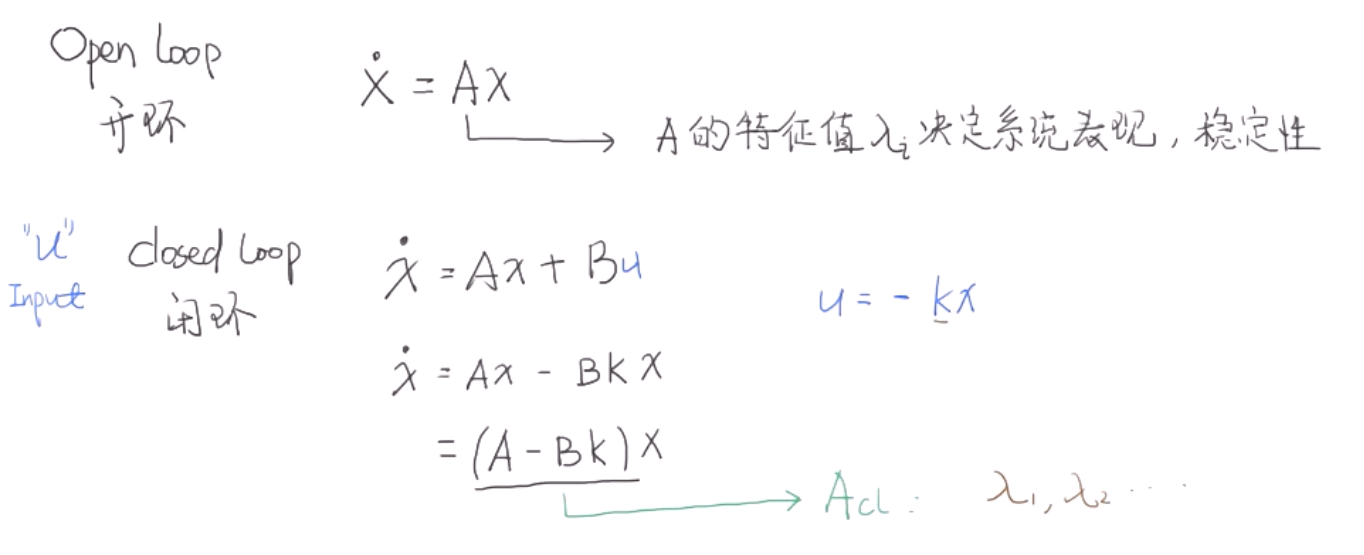 Open loop
开环
ẋ = Ax
A的特征值λᵢ决定系统表现,稳定性
"u"
Input
closed loop
闭环
ẋ = Ax + Bu
u = - kx
ẋ = Ax - BKx
= (A - BK)x
Acl : λ₁, λ₂ ...